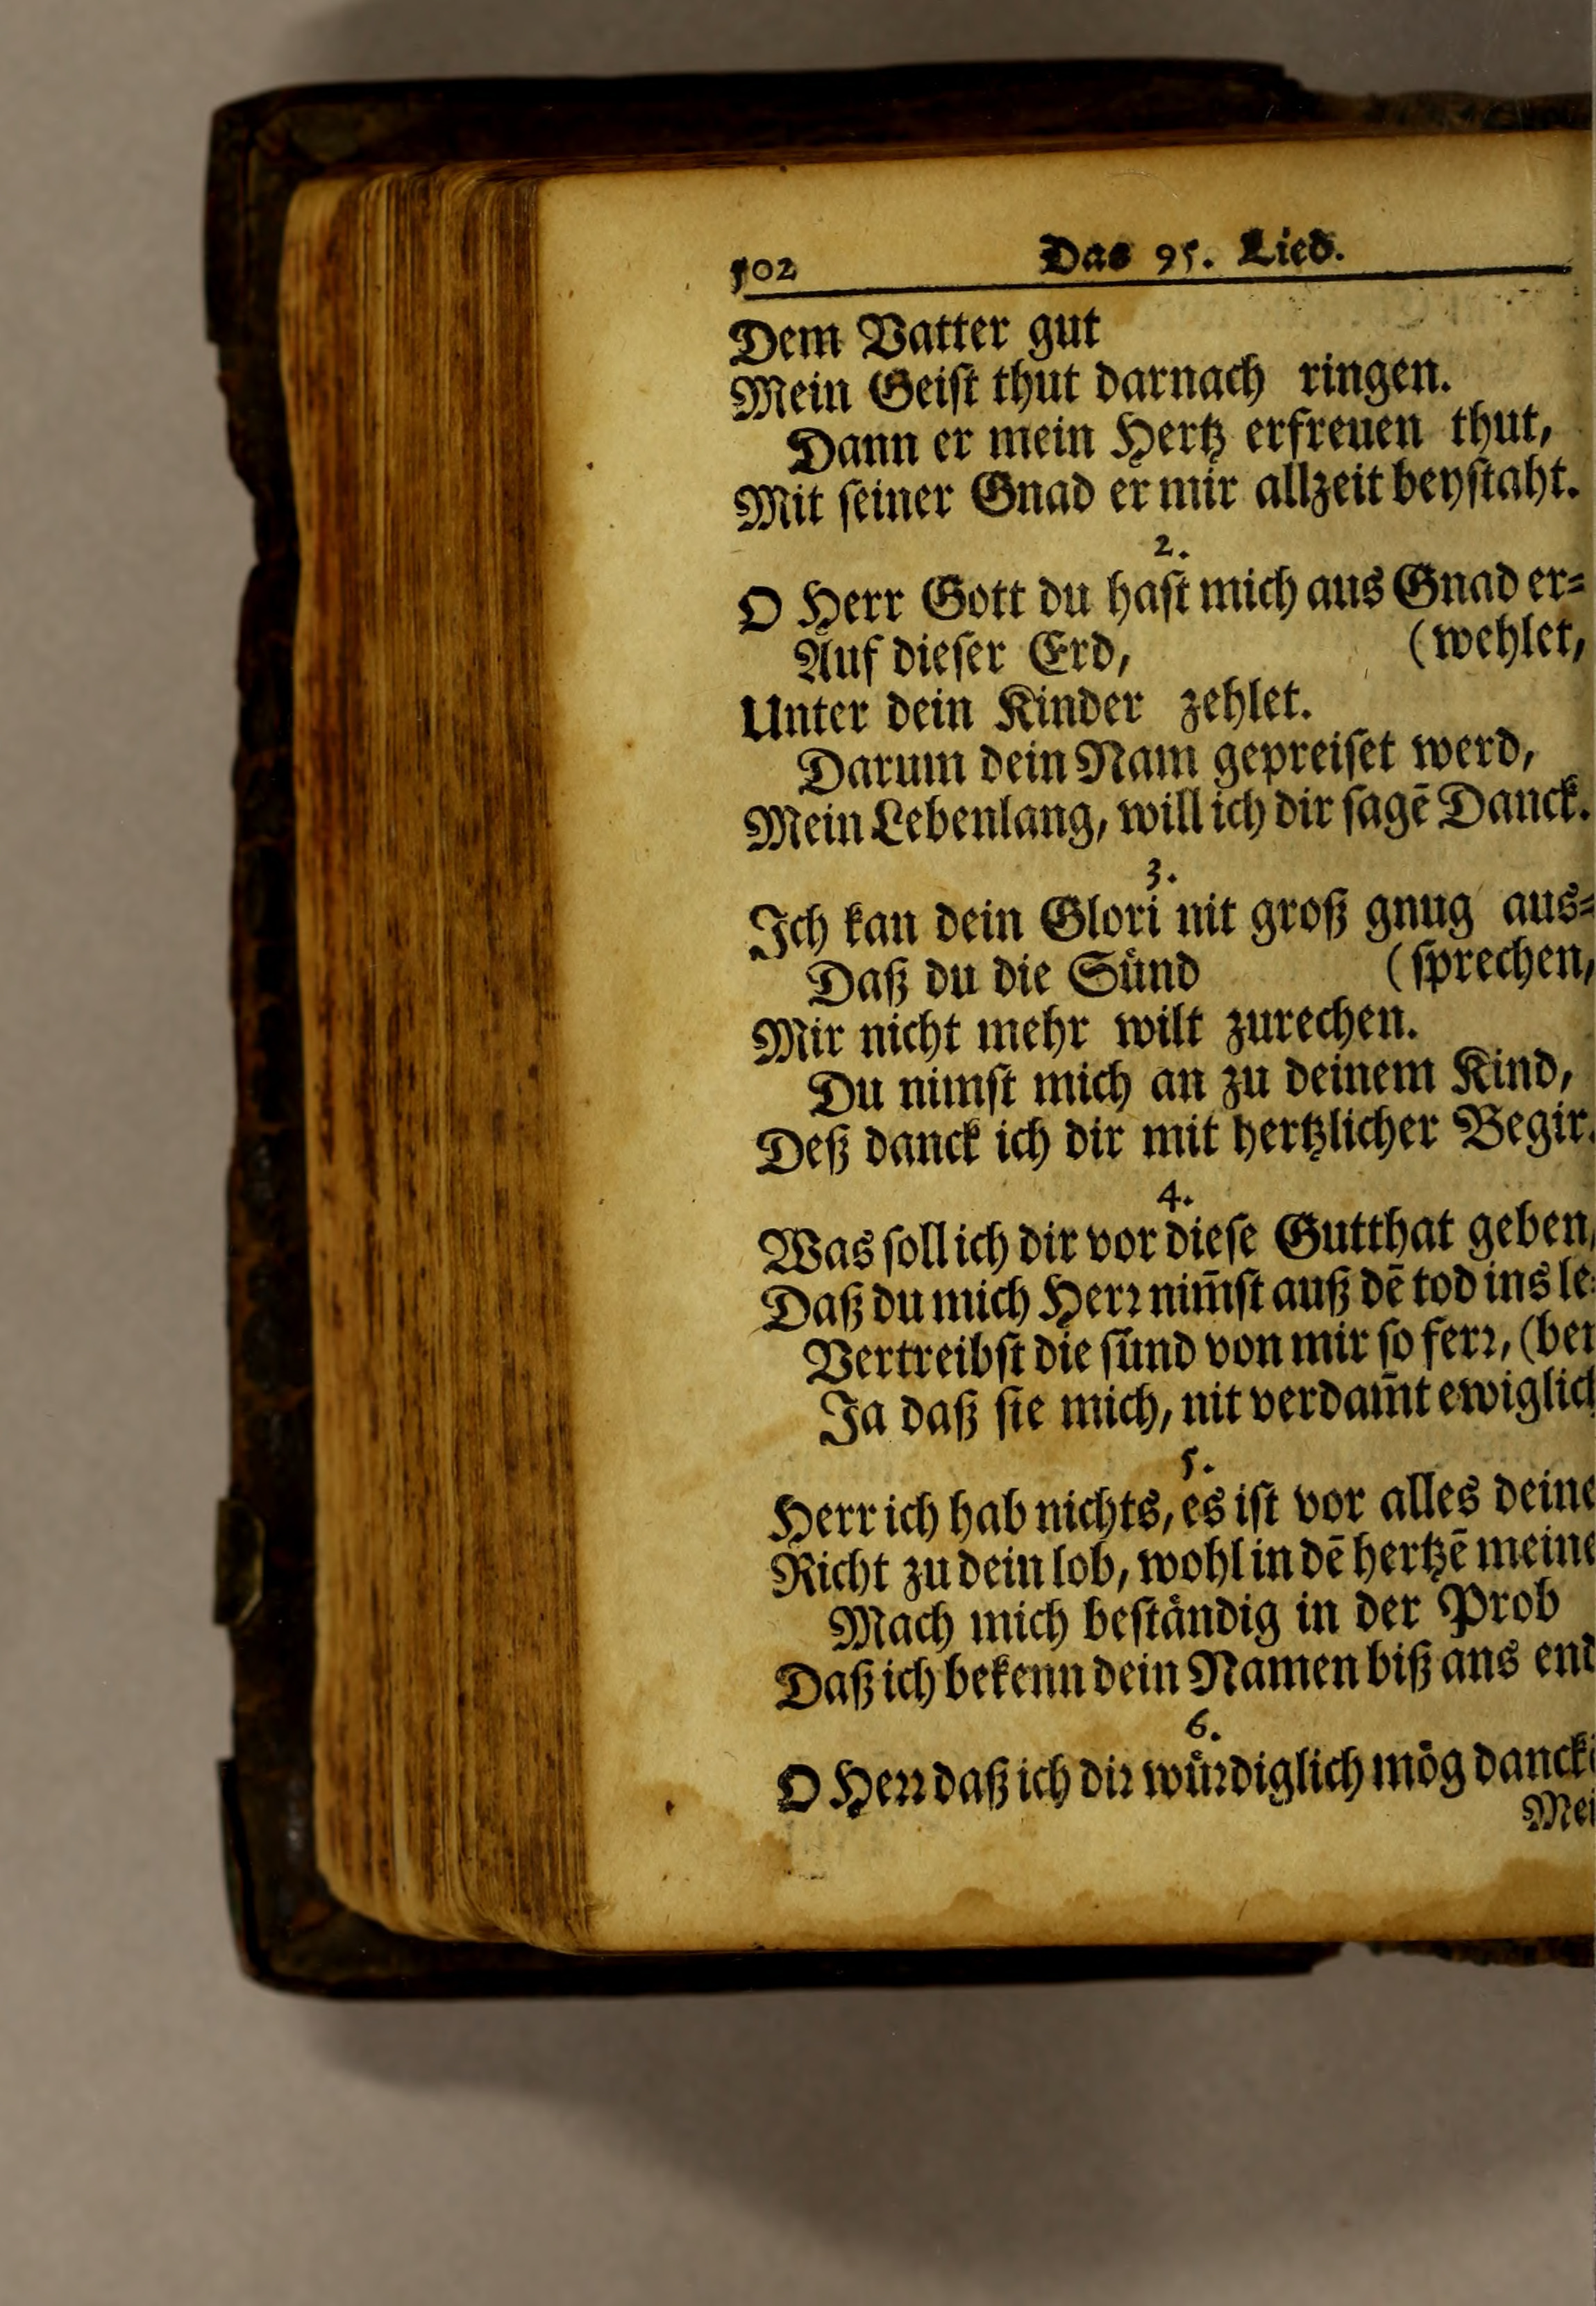 502 Das 95. Lied.
Dem Vatter gut
Mein Geiſt thut darnach ringen.
Dann er mein Hertz erfreuen thut,
Mit ſeiner Gnad er mir allzeit beyſtaht.
2.
O Herr Gott du haſt mich aus Gnad er⸗
Auf dieſer Erd, (wehlet,
Unter dein Kinder zehlet.
Darum dein Nam gepreiſet werd,
Mein Lebenlang, will ich dir ſagē Danck.
3.
Ich kan dein Glori nit groß gnug aus⸗
Daß du die Suͤnd (ſprechen,
Mir nicht mehr wilt zurechen.
Du nimſt mich an zu deinem Kind,
Deß danck ich dir mit hertzlicher Begir.
4.
Was ſoll ich dir vor dieſe Gutthat geben,
Daß du mich Herꝛ nim̄ſt auß dē tod ins le⸗
Vertreibſt die ſuͤnd von mir ſo ferꝛ, (ben
Ja daß ſie mich, nit verdam̄t ewiglich
5.
Herr ich hab nichts, es iſt vor alles deine
Richt zu dein lob, wohl in dē hertzē meine
Mach mich beſtaͤndig in der Prob
Daß ich bekenn dein Namen biß ans end
6.
O Heꝛꝛ daß ich diꝛ wuͤꝛdiglich moͤg dancke
Mei